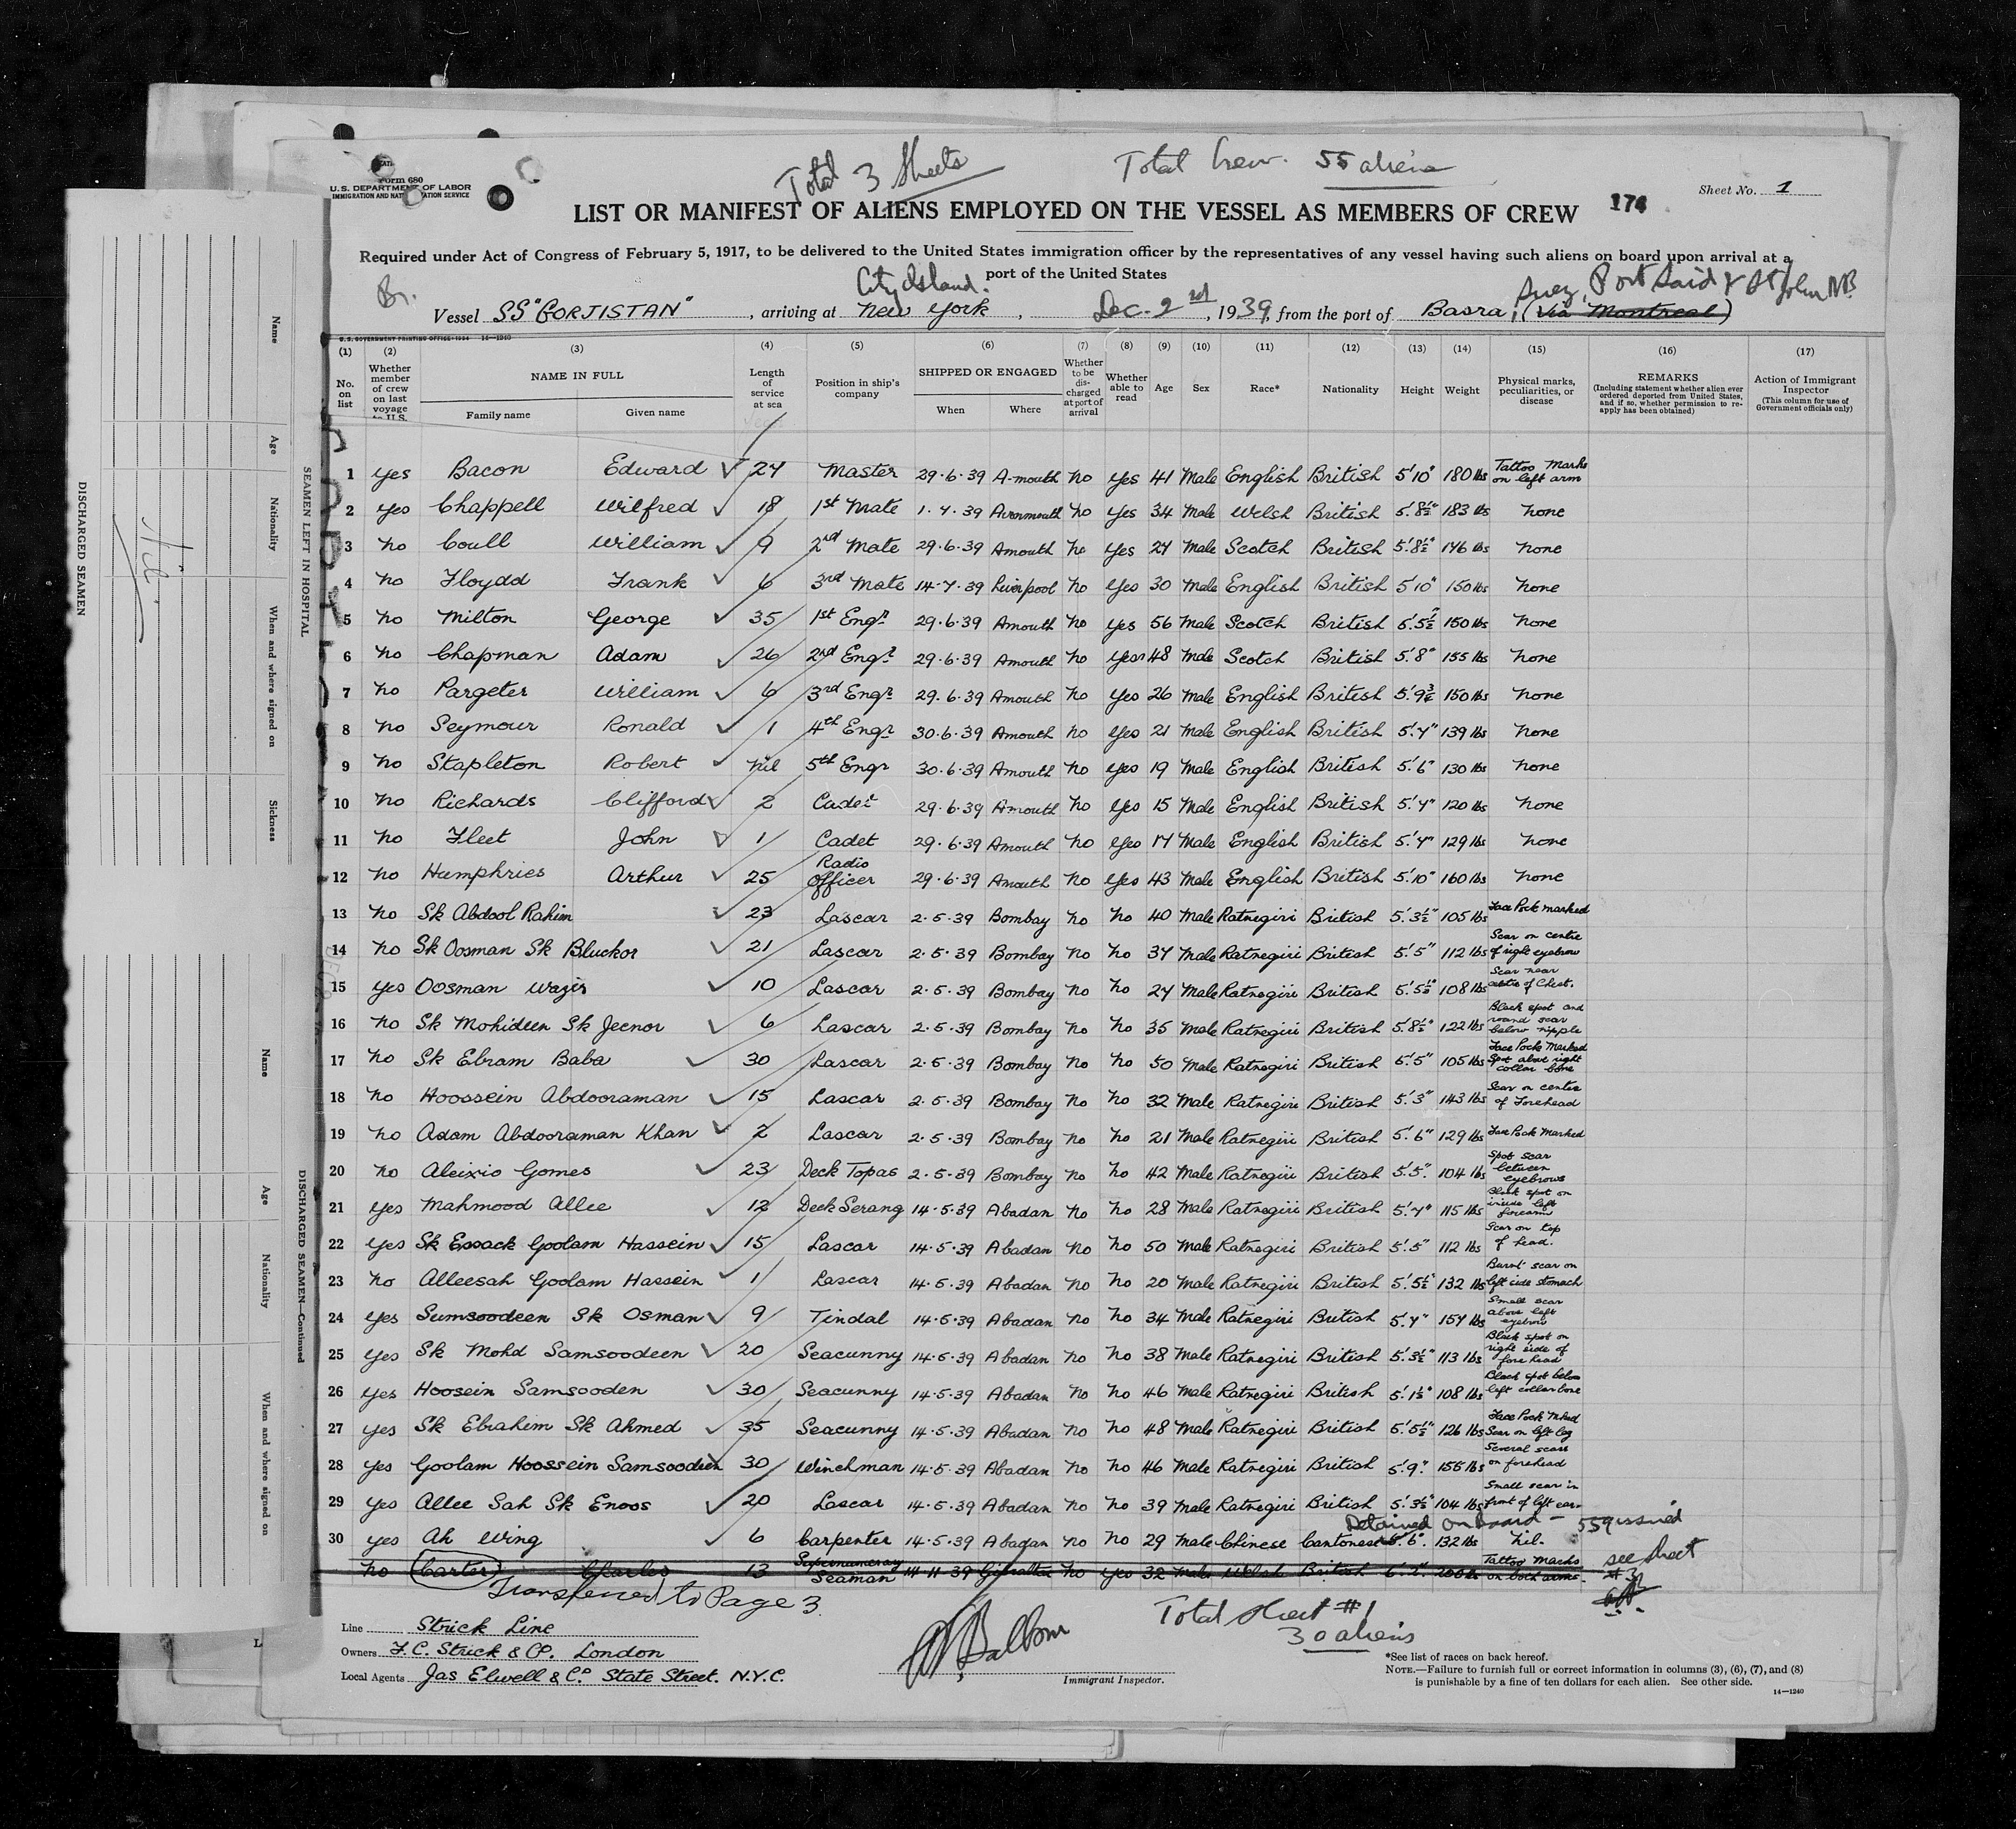 Total 3 Sheets
Total Crew. 55 aliens
Form 680
U.S. DEPARTMENT OF LABOR
IMMIGRATION AND NATURALIZATION SERVICE
Sheet No. 1
LIST OR MANIFEST OF ALIENS EMPLOYED ON THE VESSEL AS MEMBERS OF CREW
174
Required under Act of Congress of February 5, 1917, to be delivered to the United States immigration officer by the representatives of any vessel having such aliens on board upon arrival at a
port of the United States
Br. City Island. Suez, Port Said & St John NB.
Vessel SS "GORJISTAN", arriving at New York, Dec. 2nd, 1939, from the port of Basra, (via Montreal)
U.S. GOVERNMENT PRINTING OFFICE: 1934 14—1240
(1) (2) (3) (4) (5) (6) (7) (8) (9) (10) (11) (12) (13) (14) (15) (16) (17)
No. on list Whether member of crew on last voyage to U.S. NAME IN FULL Family name Given name Length of service at sea Position in ship's company SHIPPED OR ENGAGED When Where Whether to be discharged at port of arrival Whether able to read Age Sex Race* Nationality Height Weight Physical marks, peculiarities, or disease REMARKS (Including statement whether alien ever ordered deported from United States, and if so, whether permission to reapply has been obtained) Action of Immigrant Inspector (This column for use of Government officials only)
1 Yes Bacon Edward 24 Master 29.6.39 A-mouth No Yes 41 Male English British 5'10" 180 lbs Tattoo Marks on left arm
2 Yes Chappell Wilfred 18 1st Mate 1.7.39 Avonmouth No Yes 34 Male Welsh British 5'.8½" 183 lbs None
3 No Coull William 9 2nd Mate 29.6.39 Amouth No Yes 27 Male Scotch British 5'.8½" 146 lbs None
4 No Floydd Frank 6 3rd Mate 14.7.39 Liverpool No Yes 30 Male English British 5'10" 150 lbs None
5 No Milton George 35 1st Engr 29.6.39 Amouth No Yes 56 Male Scotch British 5'.5½" 150 lbs None
6 No Chapman Adam 26 2nd Engr 29.6.39 Amouth No Yes 48 Male Scotch British 5'.8" 155 lbs None
7 No Pargeter William 6 3rd Engr 29.6.39 Amouth No Yes 26 Male English British 5'.9¾ 150 lbs None
8 No Seymour Ronald 1 4th Engr 30.6.39 Amouth No Yes 21 Male English British 5'.7" 139 lbs None
9 No Stapleton Robert Nil 5th Engr 30.6.39 Amouth No Yes 19 Male English British 5'.6" 130 lbs None
10 No Richards Clifford 2 Cadet 29.6.39 Amouth No Yes 15 Male English British 5'.7" 120 lbs None
11 No Fleet John 1 Cadet 29.6.39 Amouth No Yes 17 Male English British 5'.7" 129 lbs None
12 No Humphries Arthur 25 Radio Officer 29.6.39 Amouth No Yes 43 Male English British 5'.10" 160 lbs None
13 No Sk Abdool Rahim 23 Lascar 2.5.39 Bombay No No 40 Male Ratnegiri British 5'.3½" 105 lbs Face Pock marked
14 No Sk Oosman Sk Bluckor 21 Lascar 2.5.39 Bombay No No 37 Male Ratnegiri British 5'.5" 112 lbs Scar on centre of right eyebrow
15 Yes Oosman Wazir 10 Lascar 2.5.39 Bombay No No 27 Male Ratnegiri British 5'.5½" 108 lbs Scar near centre of Chest.
16 No Sk Mohideen Sk Jeenor 6 Lascar 2.5.39 Bombay No No 35 Male Ratnegiri British 5'.8½" 122 lbs Black spot and round scar below nipple
17 No Sk Ebram Baba 30 Lascar 2.5.39 Bombay No No 50 Male Ratnegiri British 5'.5" 105 lbs Face Pock Marked Spot above right collar bone
18 No Hoossein Abdooraman 15 Lascar 2.5.39 Bombay No No 32 Male Ratnegiri British 5'.3" 143 lbs Scar on centre of Forehead
19 No Adam Abdooraman Khan 2 Lascar 2.5.39 Bombay No No 21 Male Ratnegiri British 5'.6" 129 lbs Face Pock Marked
20 No Aleixio Gomes 23 Deck Topas 2.5.39 Bombay No No 42 Male Ratnegiri British 5'.5". 104 lbs Spot scar between eyebrows
21 Yes Mahmood Allee 12 Deck Serang 14.5.39 Abadan No No 28 Male Ratnegiri British 5'.7" 115 lbs Black spot on inside left forearm
22 Yes Sk Essack Goolam Hassein 15 Lascar 14.5.39 Abadan No No 50 Male Ratnegiri British 5'.5" 112 lbs Scar on top of head.
23 No Alleesah Goolam Hassein 1 Lascar 14.5.39 Abadan No No 20 Male Ratnegiri British 5'.5½" 132 lbs Burnt scar on left side stomach
24 Yes Sumsoodeen Sk Osman 9 Tindal 14.5.39 Abadan No No 34 Male Ratnegiri British 5'.7" 157 lbs Small scar above left eyebrow
25 Yes Sk Mohd Samsoodeen 20 Seacunny 14.5.39 Abadan No No 38 Male Ratnegiri British 5'.3½" 113 lbs Black spot on right side of forehead
26 Yes Hoosein Samsooden 30 Seacunny 14.5.39 Abadan No No 46 Male Ratnegiri British 5'.1½" 108 lbs Black spot below left collar bone
27 Yes Sk Ebrahim Sk Ahmed 35 Seacunny 14.5.39 Abadan No No 48 Male Ratnegiri British 5'.5½" 126 lbs Face Pock Mked Scar on left leg
28 Yes Goolam Hoossein Samsoodeen 30 Winchman 14.5.39 Abadan No No 46 Male Ratnegiri British 5'.9". 155 lbs Several scars on forehead
29 Yes Allee Sah Sk Enoos 20 Lascar 14.5.39 Abadan No No 39 Male Ratnegiri British 5'.3½" 104 lbs Small scar in front of left ear.
Detained on board — 559 issued
30 Yes Ah Wing 6 Carpenter 14.5.39 Abadan No No 29 Male Chinese Cantonese 5'.6". 132 lbs Nil.
No Carter Charles 13 Supernumeray Seaman 14.11.39 Gibraltar No Yes 32 Male Welsh British 6'.2". 200 lbs Tattoo Marks on both arms. see sheet #3
Transferred to Page 3.
Total sheet #1
30 aliens
Line Strick Line
Owners F.C. Strick & Co. London
Local Agents Jas Elwell & Co. State Street. N.Y.C.
Immigrant Inspector.
*See list of races on back hereof.
NOTE.—Failure to furnish full or correct information in columns (3), (6), (7), and (8)
is punishable by a fine of ten dollars for each alien. See other side.
14—1240
DISCHARGED SEAMEN
Nil.
SEAMEN LEFT IN HOSPITAL
Name
Age
Nationality
When and where signed on
Sickness
DISCHARGED SEAMEN—Continued
Name
Age
Nationality
When and where signed on